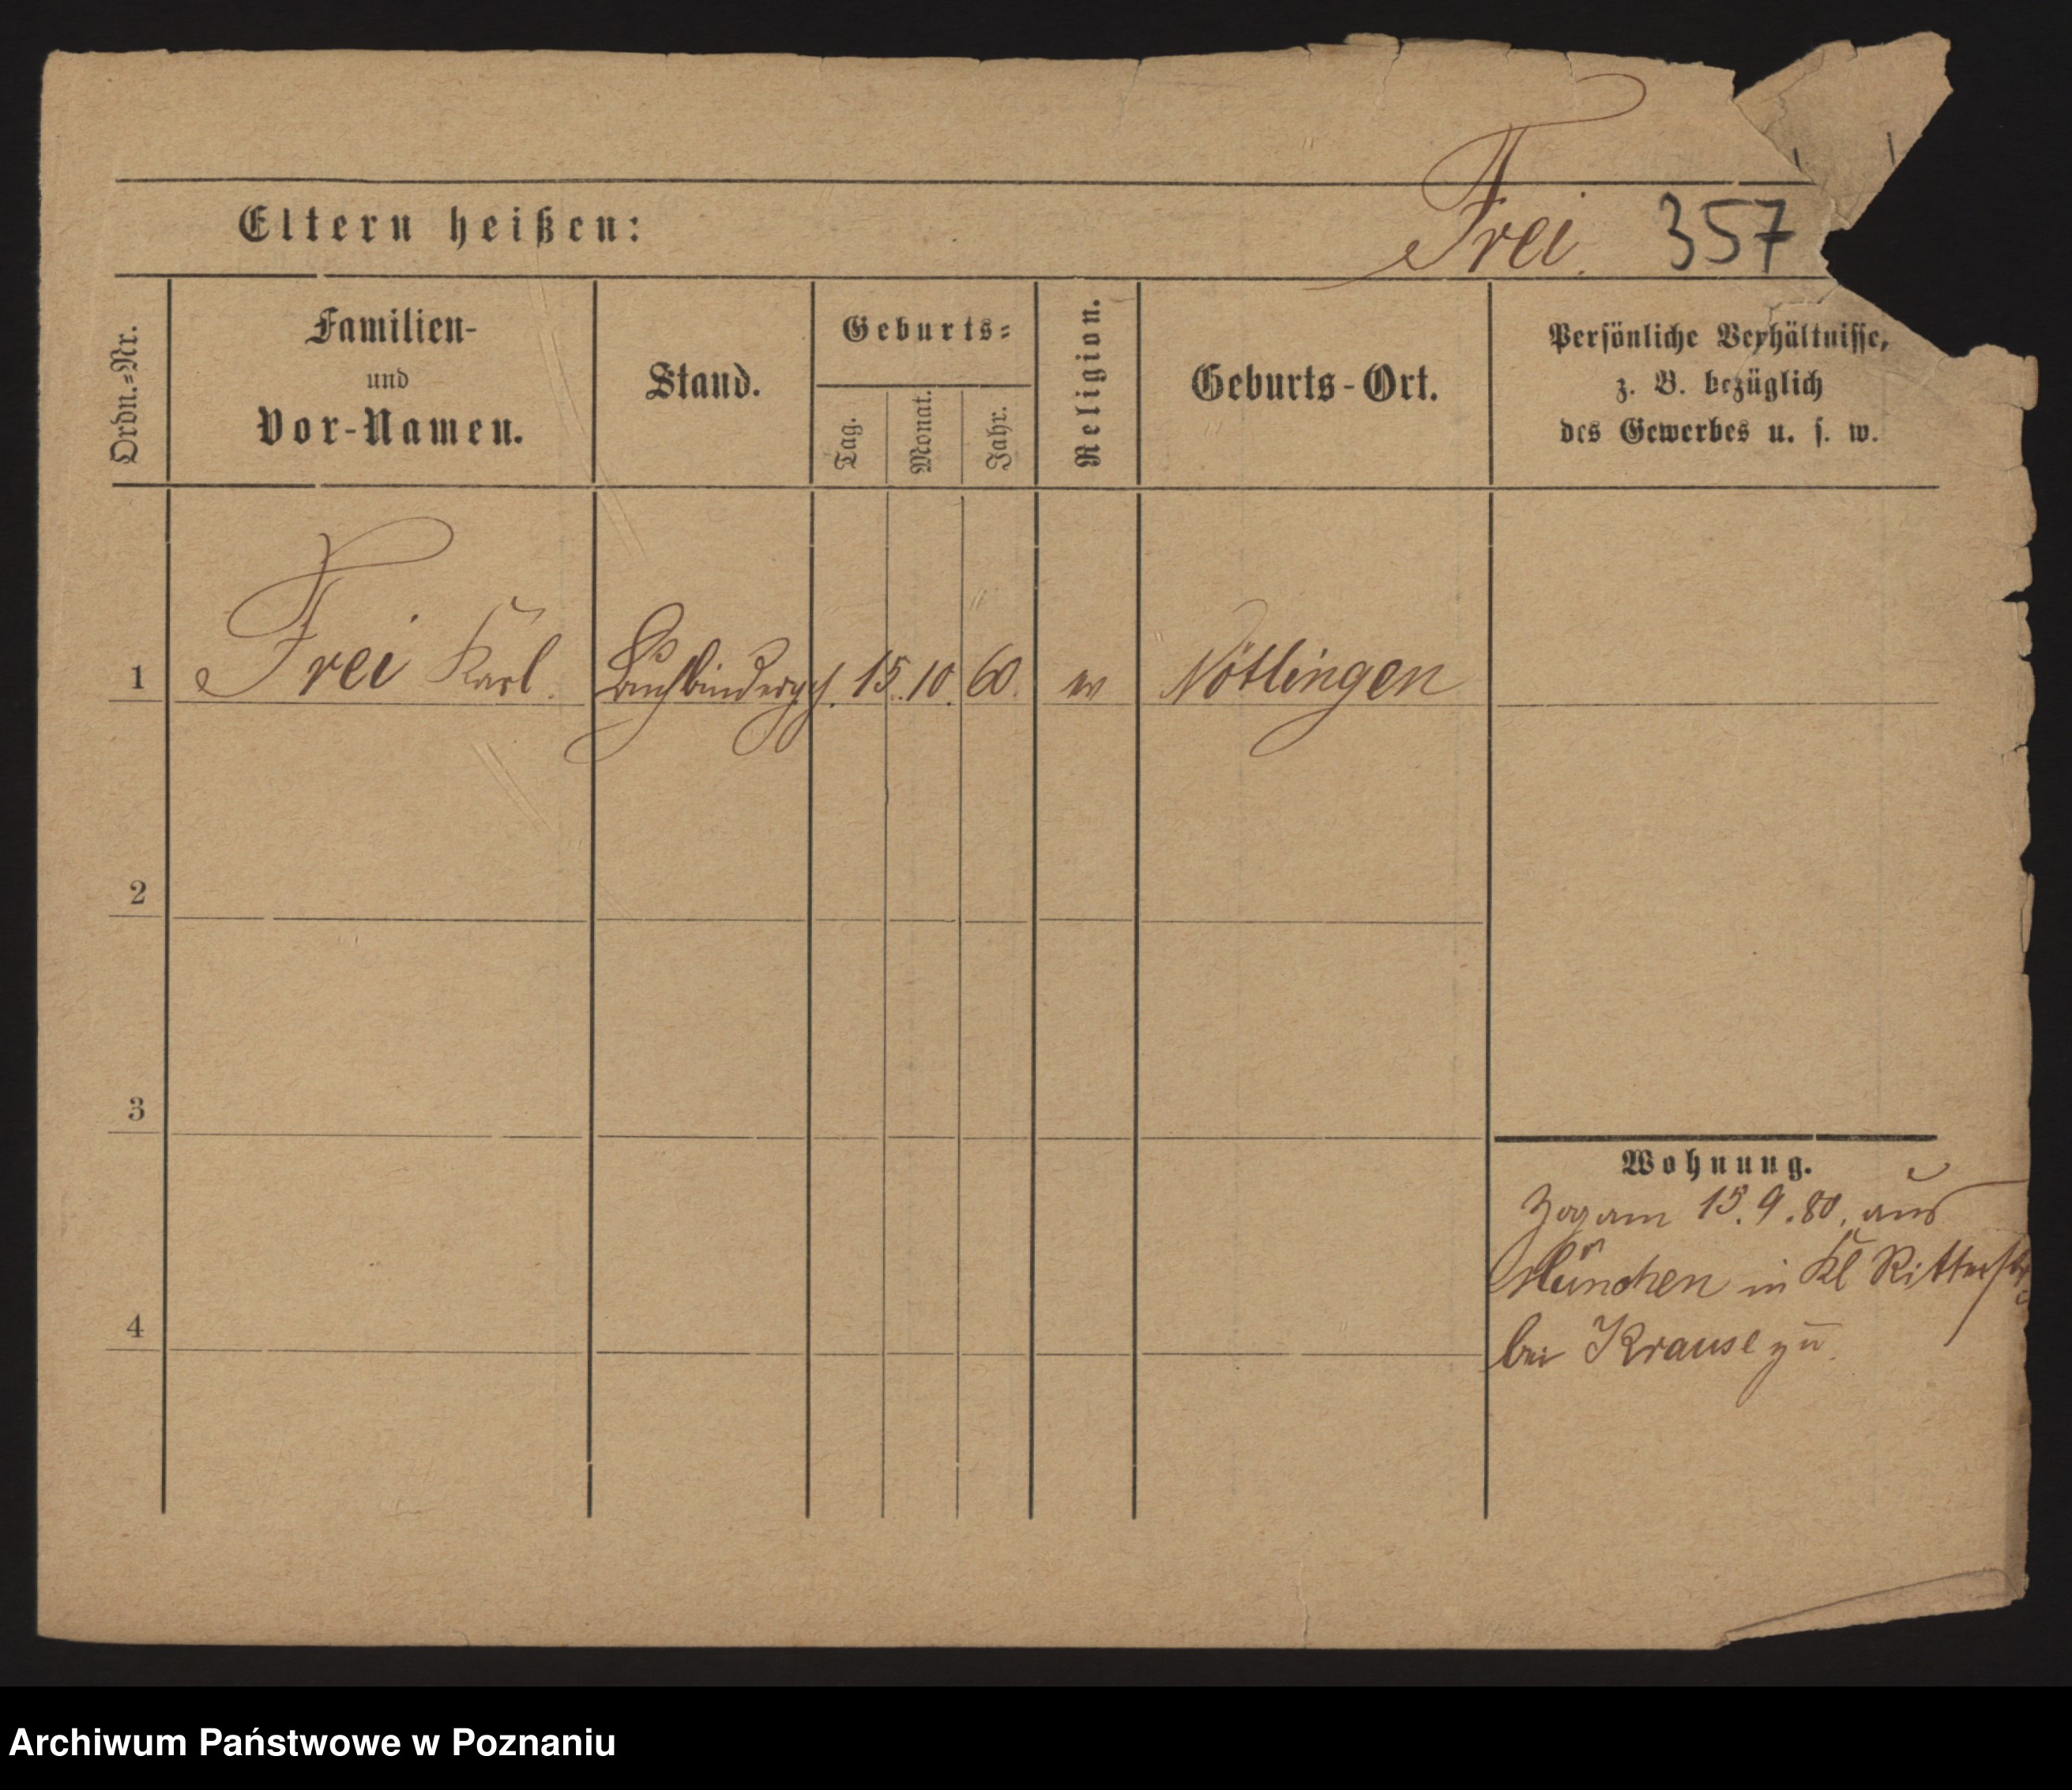 Eltern heißen:
Frei. 357
Ordn.=Nr.
Familien-
und
Vor-Namen.
Stand.
Geburts=
Tag.
Monat.
Jahr.
Religion.
Geburts-Ort.
Persönliche Verhältnisse,
z. B. bezüglich
des Gewerbes u. s. w.
1 Frei Karl. Buchbinderges. 15. 10. 60. ev Nöttlingen
2
3
4
Wohnung.
Zog am 15. 9. 80. aus
München in Kl Ritterstr
bei Krause zu.
Archiwum Państwowe w Poznaniu